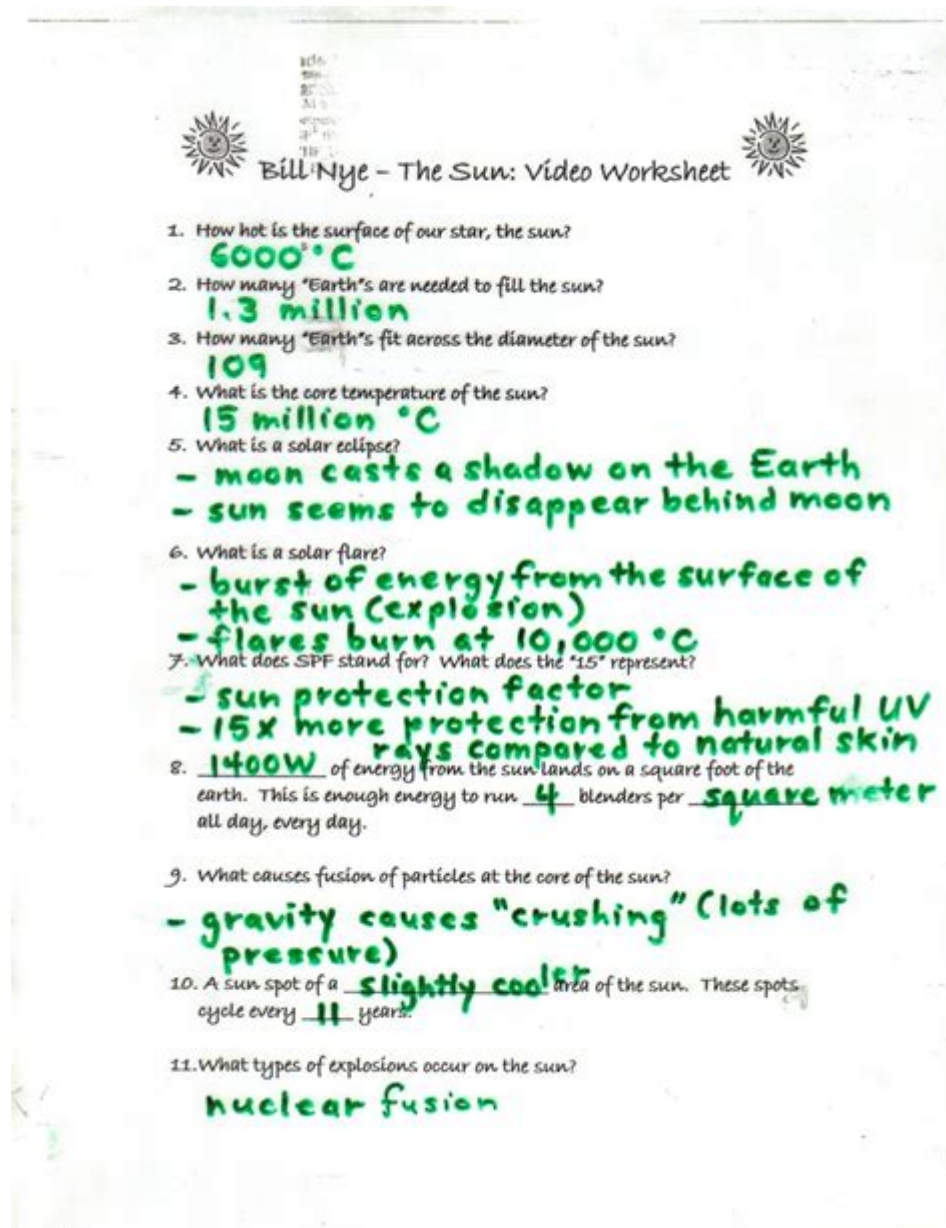 Bill Nye - The Sun: Video Worksheet
1. How hot is the surface of our star, the sun?
6000°C
2. How many "Earth"s are needed to fill the sun?
1.3 million
3. How many "Earth"s fit across the diameter of the sun?
109
4. What is the core temperature of the sun?
15 million °C
5. What is a solar eclipse?
- moon casts a shadow on the Earth
- sun seems to disappear behind moon
6. What is a solar flare?
- burst of energy from the surface of
the sun (explosion)
- flares burn at 10,000 °C
7. What does SPF stand for? What does the "15" represent?
- sun protection factor
- 15x more protection from harmful UV
rays compared to natural skin
8. 1400W of energy from the sun lands on a square foot of the
earth. This is enough energy to run 4 blenders per square meter
all day, every day.
9. What causes fusion of particles at the core of the sun?
- gravity causes "crushing" (lots of
pressure)
10. A sun spot of a slightly cooler area of the sun. These spots
cycle every 11 years.
11. What types of explosions occur on the sun?
nuclear fusion